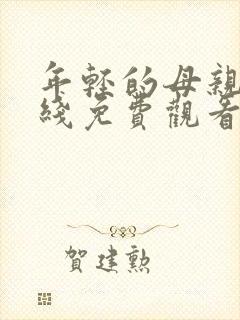 年轻的母親
綫免費觀看
賀建勲